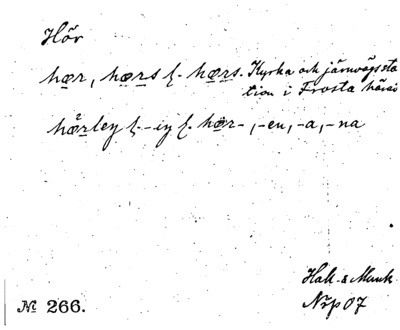 Hör
hœr, hœrs l. hœrs. Kyrka och järnvägssta
tion i Frosta härad
hœrley l. -iy l. hœr-, -en, -a, -na
Hall. & Munk
Nrp 07
№ 266.